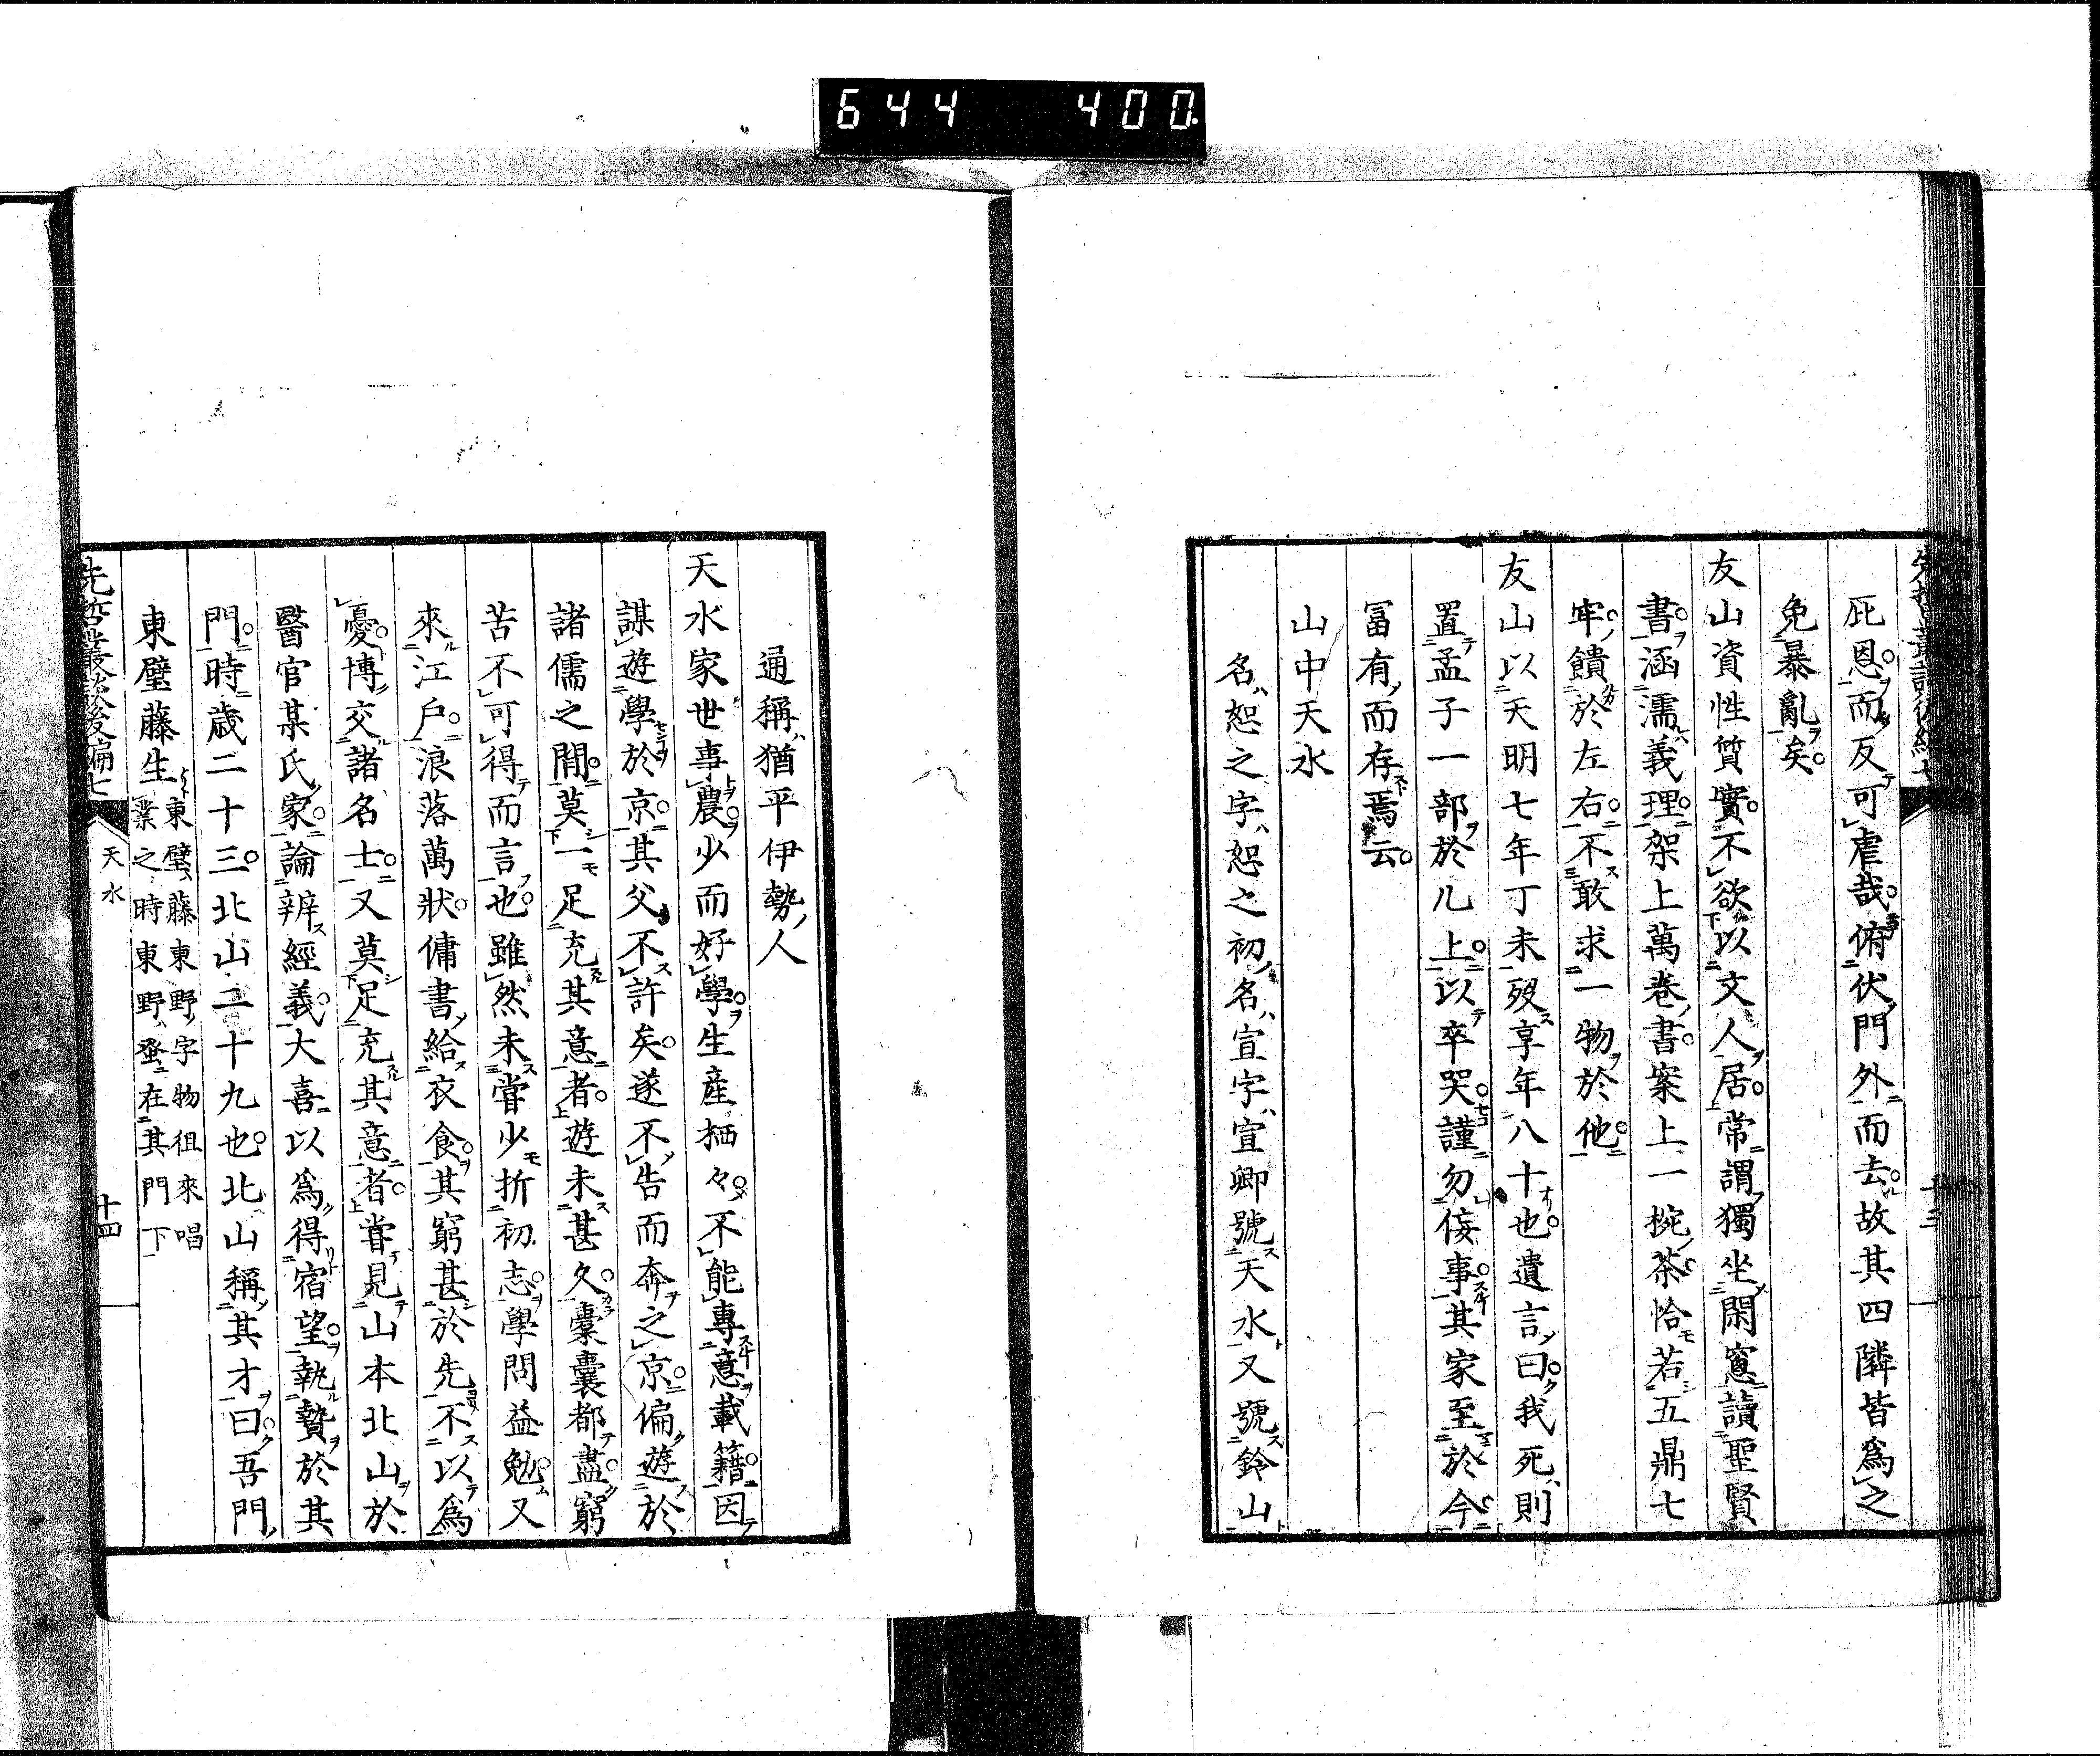 644 400
庇恩而反可虐哉俯伏門外而去故其四隣皆爲之
免暴亂矣
友山資性質實不欲以文人居常謂獨坐閑窓讀聖賢
書涵濡義理架上萬卷書案上一椀茶恰若五鼎七
牢饋於左右不敢求一物於他
友山以天明七年丁未歿享年八十也遺言曰我死則
置孟子一部於几上以卒哭謹勿佞事其家至於今
冨有而存焉云
山中天水
名恕之字恕之初名宣字宣卿號天水又號鈴山
通稱猶平伊勢人
天水家世事農少而好學生産栖々不能專意載籍因
謀遊學於京其父不許矣遂不告而奔之京偏遊於
諸儒之間莫一足充其意者遊未甚久囊橐都盡窮
苦不可得而言也雖然未嘗少折初志學問益勉又
來江戶浪落萬狀傭書給衣食其窮甚於先不以爲
憂博交諸名士又莫足充其意者嘗見山本北山於
醫官某氏家論辨經義大喜以爲得宿望執贄於其
門時歲二十三北山二十九也北山稱其才曰吾門
東壁藤生東壁藤東野字物徂來唱
業之時東野蚤在其門下
先哲叢談後編七
天水
十四